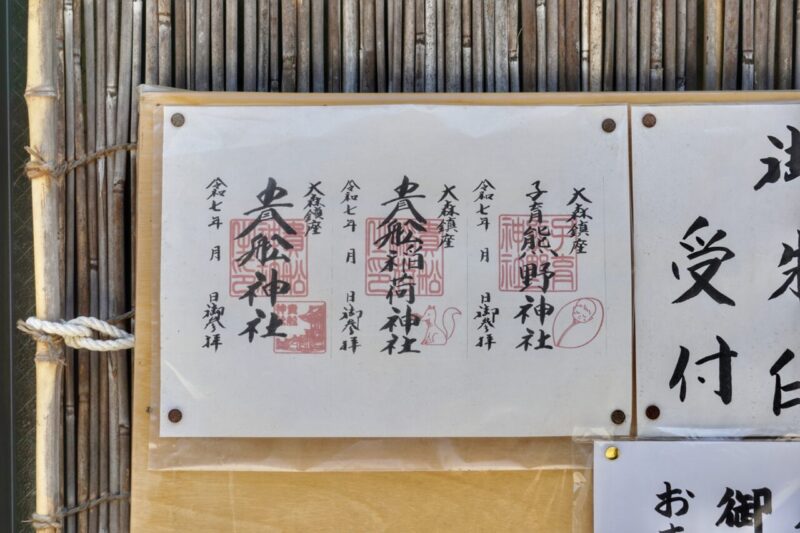 御朱印
受付
大森鎮座
子育熊野神社
令和七年 月 日御参拝
大森鎮座
貴舩稲荷神社
令和七年 月 日御参拝
大森鎮座
貴舩神社
令和七年 月 日御参拝
御
お